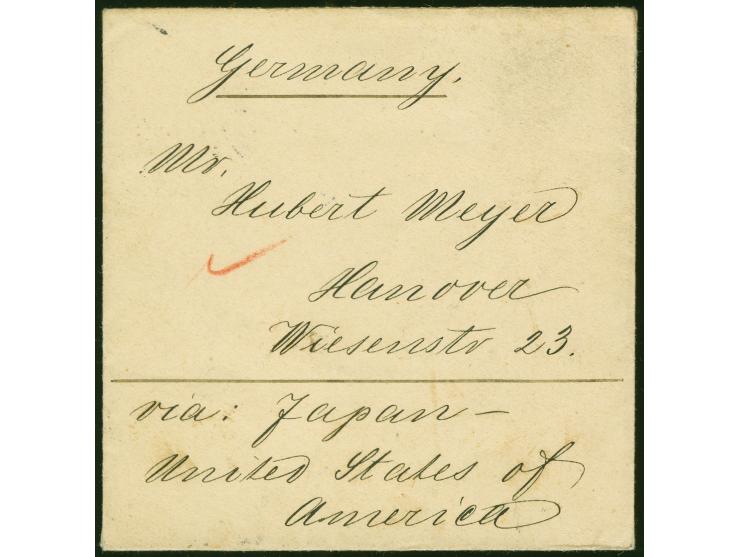 Germany.
Mr.
Hubert Meyer
Hanover
Wiesenstr 23.
via: Japan –
United States of
America